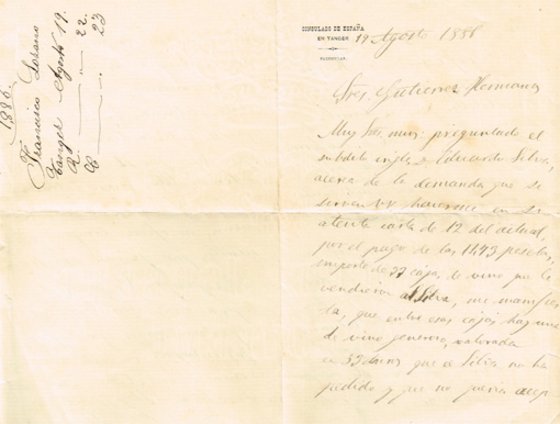 1886.
Francisco Lozano
Tanger Agosto 19.
R 22.
C 23
CONSULADO DE ESPAÑA
EN TANGER
PARTICULAR.
19 Agosto 1886
Sres. Gutierrez Hermanos
Muy Sres. mios: preguntado el
subdito inglés Eduardo Silva,
acerca de la demanda que se
sirven VV hacerme en su
atenta carta de 12 del actual,
por el pago de las 1143 pesetas,
importe de 37 cajas de vino que le
vendieron al Silva, me manifies
ta, que entre esas cajas hay una
de vino generoso, valorada
en 33 duros que el Silva no ha
pedido y que no queria acep